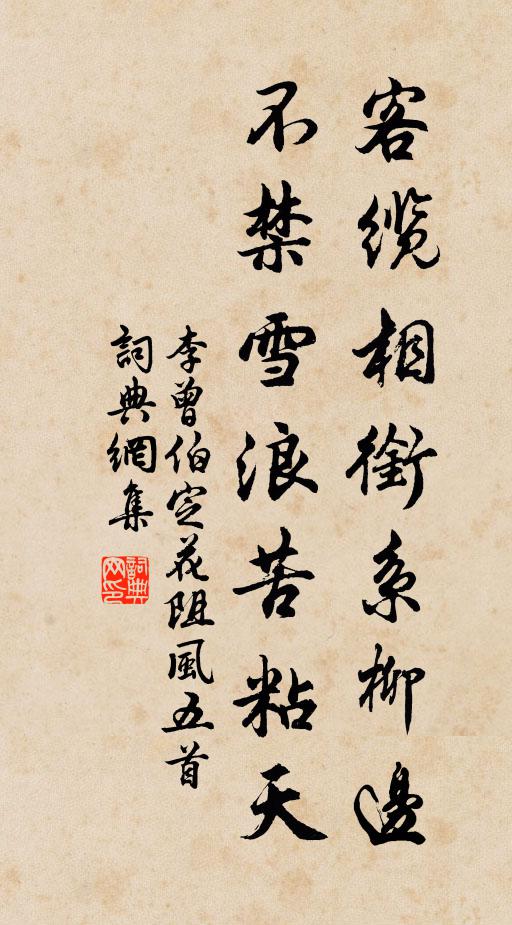 客纜相銜系柳邊
不禁雪浪苦粘天
李曾伯定花阻風五首
詞典網集
詞典网印